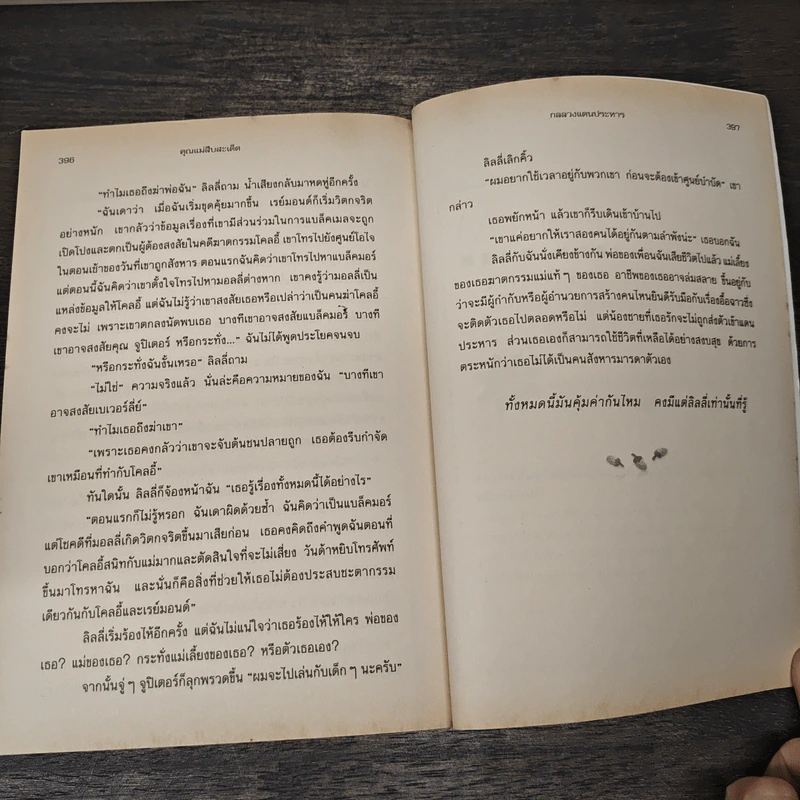 396
คุณแม่สืบสะเด็ด
"ทำไมเธอถึงฆ่าพ่อฉัน" ลิลลี่ถาม น้ำเสียงกลับมาหดหู่อีกครั้ง
"ฉันเดาว่า เมื่อฉันเริ่มขุดคุ้ยมากขึ้น เรย์มอนด์ก็เริ่มวิตกจริต
อย่างหนัก เขากลัวว่าข้อมูลเรื่องที่เขามีส่วนร่วมในการแบล็คเมลจะถูก
เปิดโปงและตกเป็นผู้ต้องสงสัยในคดีฆาตกรรมโคลอี้ เขาโทรไปยังศูนย์โอไจ
ในตอนเช้าของวันที่เขาถูกสังหาร ตอนแรกฉันคิดว่าเขาโทรไปหาแบล็คมอร์
แต่ตอนนี้ฉันคิดว่าเขาตั้งใจโทรไปหามอลลี่ต่างหาก เขาคงรู้ว่ามอลลี่เป็น
แหล่งข้อมูลให้โคลอี้ แต่ฉันไม่รู้ว่าเขาสงสัยเธอหรือเปล่าว่าเป็นคนฆ่าโคลอี้
คงจะไม่ เพราะเขาตกลงนัดพบเธอ บางทีเขาอาจสงสัยแบล็คมอร์ บางที
เขาอาจสงสัยคุณ จูปิเตอร์ หรือกระทั่ง..." ฉันไม่ได้พูดประโยคจนจบ
"หรือกระทั่งฉันงั้นเหรอ" ลิลลี่ถาม
"ไม่ใช่" ความจริงแล้ว นั่นล่ะคือความหมายของฉัน "บางทีเขา
อาจสงสัยเบเวอร์ลี่ย์"
"ทำไมเธอถึงฆ่าเขา"
"เพราะเธอคงกลัวว่าเขาจะจับต้นชนปลายถูก เธอต้องรีบกำจัด
เขาเหมือนที่ทำกับโคลอี้"
ทันใดนั้น ลิลลี่ก็จ้องหน้าฉัน "เธอรู้เรื่องทั้งหมดนี้ได้อย่างไร"
"ตอนแรกก็ไม่รู้หรอก ฉันเดาผิดด้วยซ้ำ ฉันคิดว่าเป็นแบล็คมอร์
แต่โชคดีที่มอลลี่เกิดวิตกจริตขึ้นมาเสียก่อน เธอคงคิดถึงคำพูดฉันตอนที่
บอกว่าโคลอี้สนิทกับแม่มากและตัดสินใจที่จะไม่เสี่ยง วันด้าหยิบโทรศัพท์
ขึ้นมาโทรหาฉัน และนั่นก็คือสิ่งที่ช่วยให้เธอไม่ต้องประสบชะตากรรม
เดียวกันกับโคลอี้และเรย์มอนด์"
ลิลลี่เริ่มร้องไห้อีกครั้ง แต่ฉันไม่แน่ใจว่าเธอร้องไห้ให้ใคร พ่อของ
เธอ? แม่ของเธอ? กระทั่งแม่เลี้ยงของเธอ? หรือตัวเธอเอง?
จากนั้นจู่ ๆ จูปิเตอร์ก็ลุกพรวดขึ้น "ผมจะไปเล่นกับเด็ก ๆ นะครับ"
กลลวงแดนประหาร
397
ลิลลี่เลิกคิ้ว
"ผมอยากใช้เวลาอยู่กับพวกเขา ก่อนจะต้องเข้าศูนย์บำบัด" เขา
กล่าว
เธอพยักหน้า แล้วเขาก็รีบเดินเข้าบ้านไป
"เขาแค่อยากให้เราสองคนได้อยู่กันตามลำพังน่ะ" เธอบอกฉัน
ลิลลี่กับฉันนั่งเคียงข้างกัน พ่อของเพื่อนฉันเสียชีวิตไปแล้ว แม่เลี้ยง
ของเธอฆาตกรรมแม่แท้ ๆ ของเธอ อาชีพของเธออาจล่มสลาย ขึ้นอยู่กับ
ว่าจะมีผู้กำกับหรือผู้อำนวยการสร้างคนไหนยินดีรับมือกับเรื่องอื้อฉาวซึ่ง
จะติดตัวเธอไปตลอดหรือไม่ แต่น้องชายที่เธอรักจะไม่ถูกส่งตัวเข้าแดน
ประหาร ส่วนเธอเองก็สามารถใช้ชีวิตที่เหลือได้อย่างสงบสุข ด้วยการ
ตระหนักว่าเธอไม่ได้เป็นคนสังหารมารดาตัวเอง
ทั้งหมดนี้มันคุ้มค่ากันไหม คงมีแต่ลิลลี่เท่านั้นที่รู้